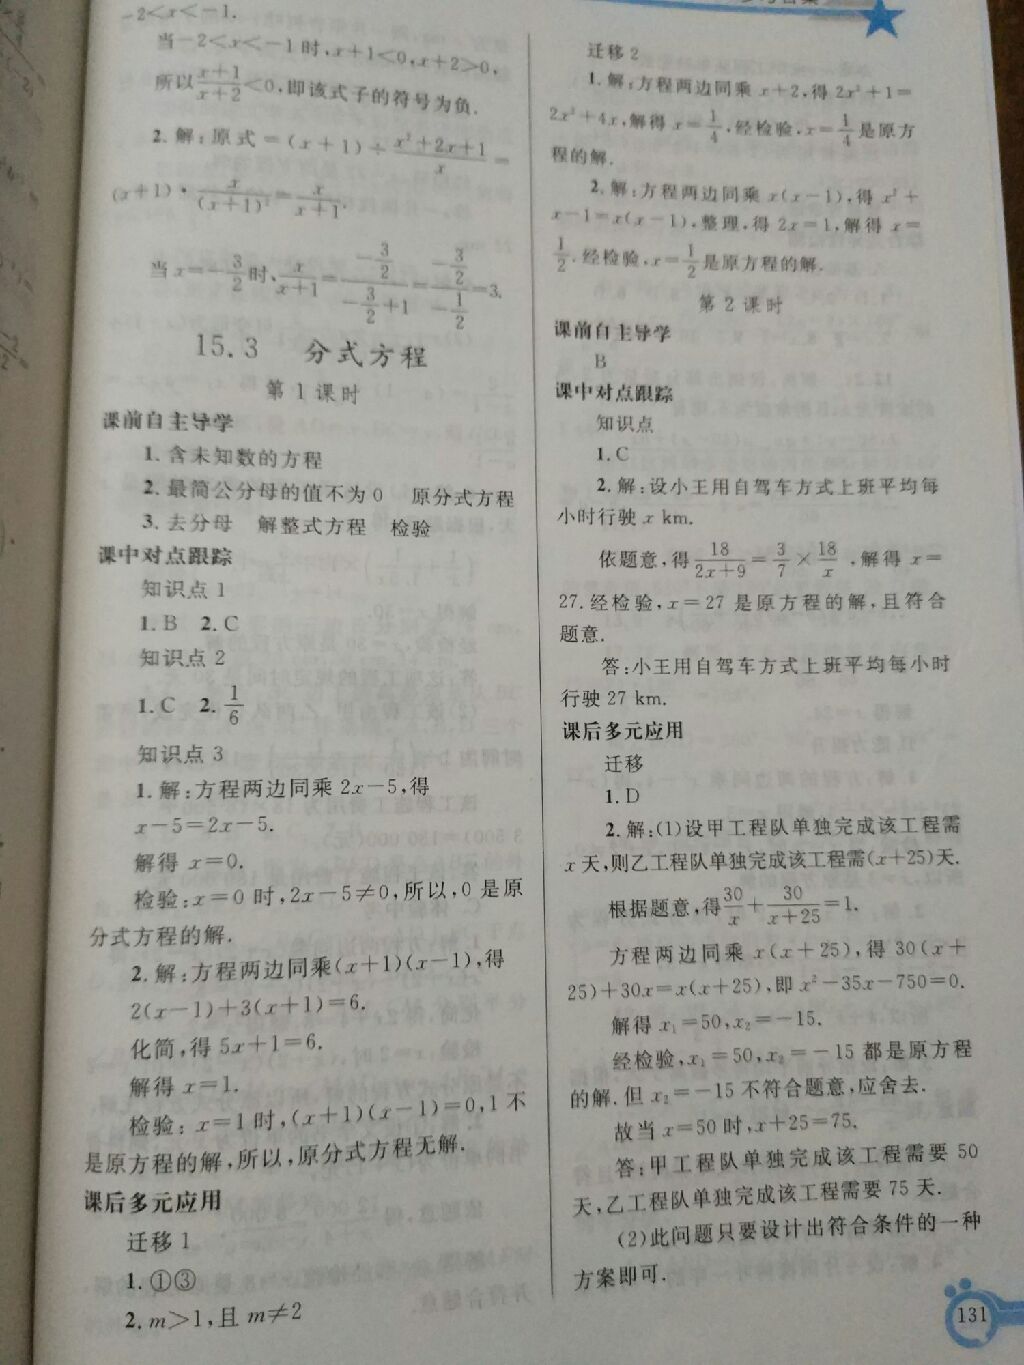 -2<x<-1.
当-2<x<-1时,x+1<0,x+2>0,
所以(x+1)/(x+2)<0,即该式子的符号为负.
2. 解:原式=(x+1)÷(x²+2x+1)/x=
(x+1)·x/(x+1)²=x/(x+1).
当x=-3/2时,x/(x+1)=(-3/2)/(-3/2+1)=(-3/2)/(-1/2)=3.
15.3 分式方程
第1课时
课前自主导学
1. 含未知数的方程
2. 最简公分母的值不为0 原分式方程
3. 去分母 解整式方程 检验
课中对点跟踪
知识点1
1. B 2. C
知识点2
1. C 2. 1/6
知识点3
1. 解:方程两边同乘2x-5,得
x-5=2x-5.
解得x=0.
检验:x=0时,2x-5≠0,所以,0是原
分式方程的解.
2. 解:方程两边同乘(x+1)(x-1),得
2(x-1)+3(x+1)=6.
化简,得5x+1=6.
解得x=1.
检验:x=1时,(x+1)(x-1)=0,1不
是原方程的解,所以,原分式方程无解.
课后多元应用
迁移1
1. ①③
2. m>1,且m≠2
迁移2
1. 解:方程两边同乘x+2,得2x²+1=
2x²+4x,解得x=1/4.经检验,x=1/4是原方
程的解.
2. 解:方程两边同乘x(x-1),得x²+
x-1=x(x-1),整理,得2x=1,解得x=
1/2.经检验,x=1/2是原方程的解.
第2课时
课前自主导学
B
课中对点跟踪
知识点
1. C
2. 解:设小王用自驾车方式上班平均每
小时行驶x km.
依题意,得18/(2x+9)=3/7×18/x,解得x=
27.经检验,x=27是原方程的解,且符合
题意.
答:小王用自驾车方式上班平均每小时
行驶27 km.
课后多元应用
迁移
1. D
2. 解:(1)设甲工程队单独完成该工程需
x天,则乙工程队单独完成该工程需(x+25)天.
根据题意,得30/x+30/(x+25)=1.
方程两边同乘x(x+25),得30(x+
25)+30x=x(x+25),即x²-35x-750=0.
解得x₁=50,x₂=-15.
经检验,x₁=50,x₂=-15都是原方程
的解.但x₂=-15不符合题意,应舍去.
故当x=50时,x+25=75.
答:甲工程队单独完成该工程需要50
天,乙工程队单独完成该工程需要75天.
(2)此问题只要设计出符合条件的一种
方案即可.
131